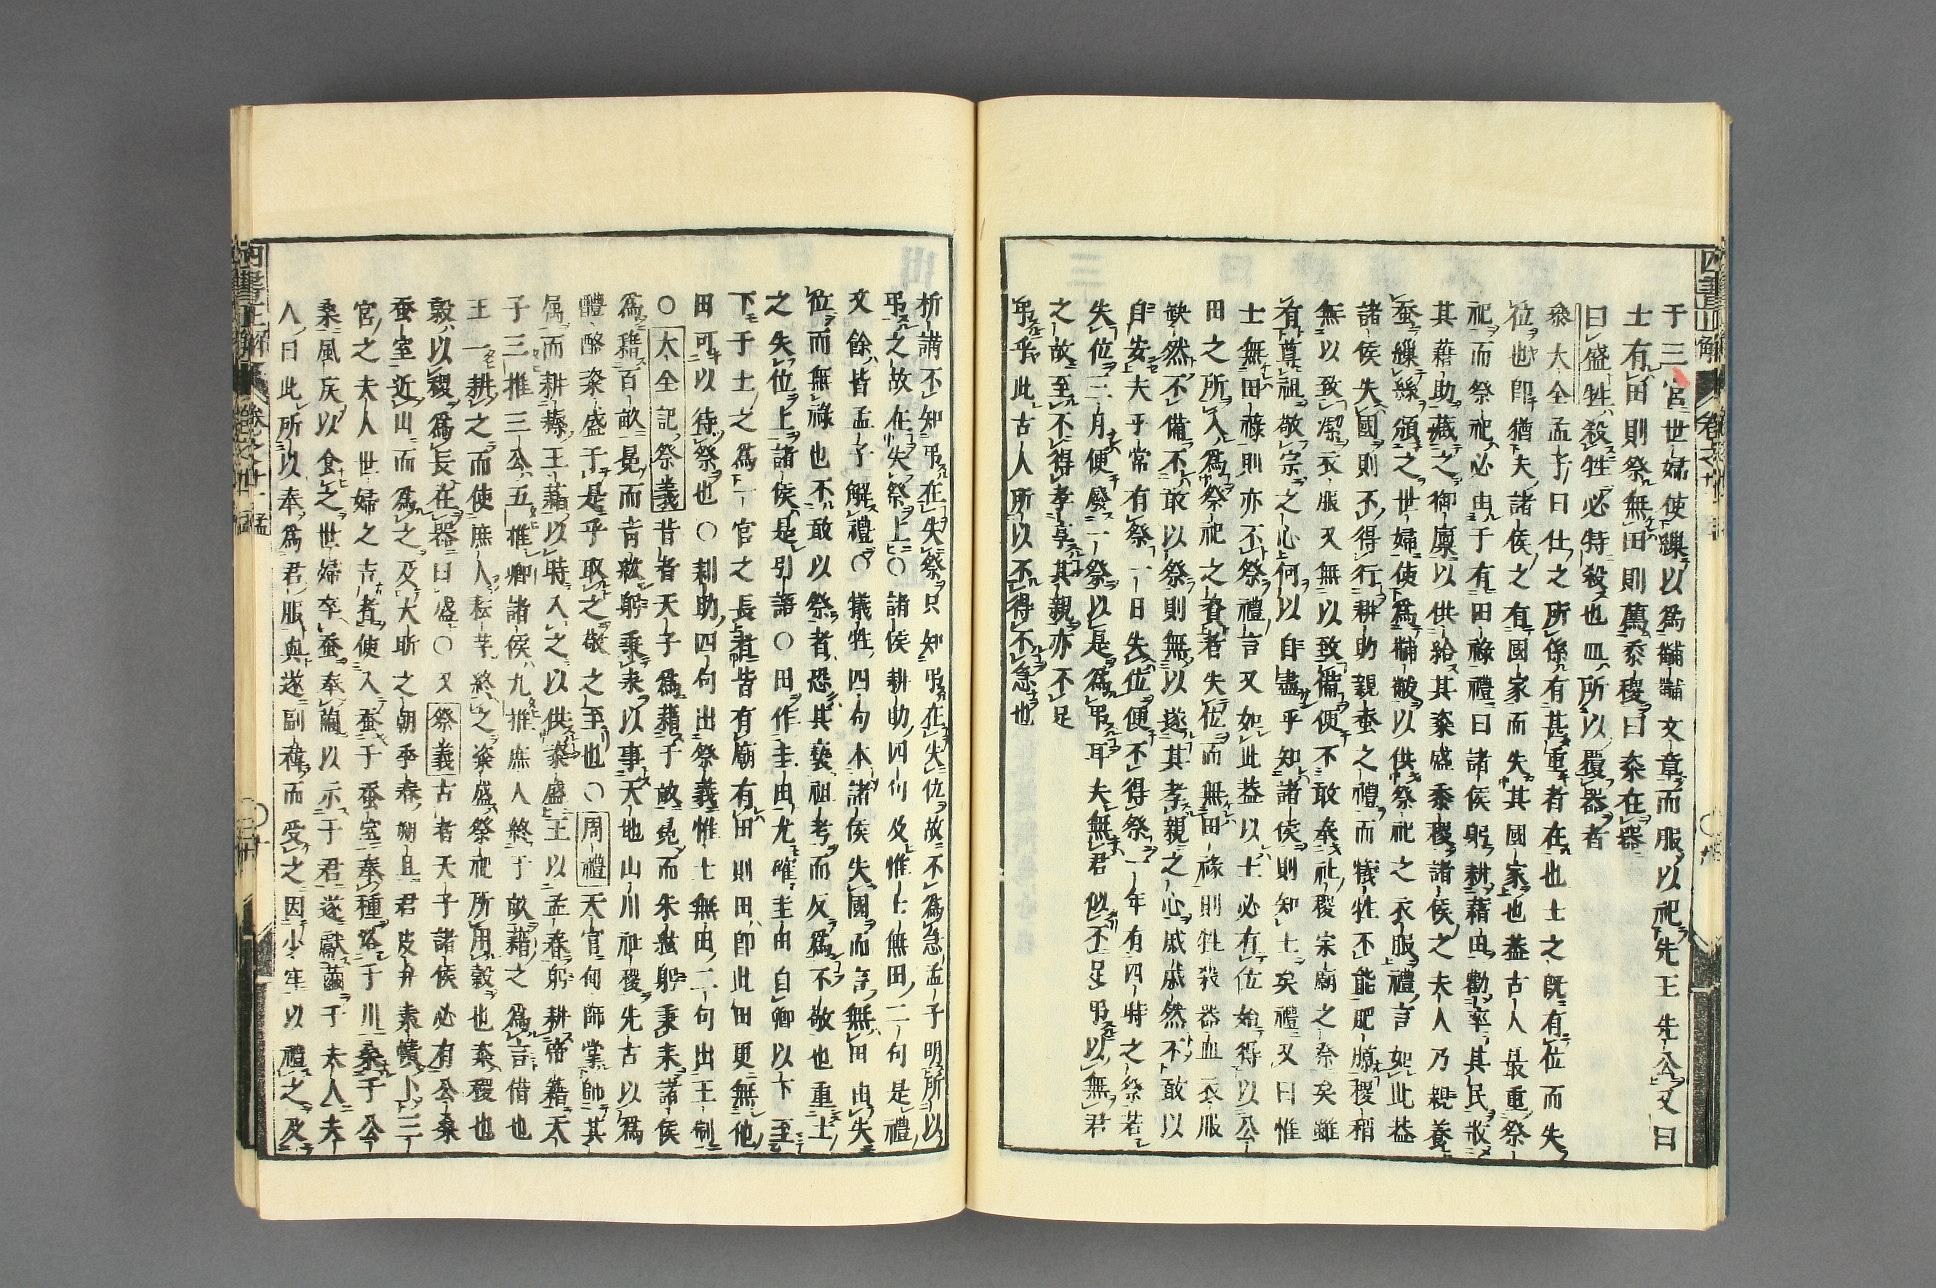 于三宮世婦使繅以爲黼黻文章而服以祀先王先公又曰
士有田則祭無田則薦黍稷曰粢在器
曰盛牲殺牲必特殺也皿所以覆器者
粂大全孟子曰仕之所係有甚重者在也士之既有位而失
位也卽猶夫諸侯之有國家而失其國家也蓋古人最重祭
祀而祭祀必由于有田祿禮曰諸侯躬耕藉田勸率其民收
其藉助藏之御廩以供給其粢盛黍稷諸侯之夫人乃親養
蚕繅絲頒之世婦使爲黼黻以供祭祀之衣服禮言如此蓋
諸侯失國則不得行耕助親蚕之禮而犧牲不能肥腯稷稻
無以致潔衣服又無以致備便不敢奉社稷宗廟之祭矣雖
有尊祖敬宗之心何以自盡乎知諸侯則知士矣禮又曰惟
士無田祿則亦不祭禮言又如此蓋以士必有位始得以公
田之所入爲祭祀之資者失位而無田祿則牲殺器皿衣服
缺然不備不敢以祭則無以遂其孝親之心戚戚然不敢以
自安夫乎常有祭一日失位便不得祭一年有四時之祭若
失位三月便廢一祭以是爲弔耳夫無君似不足弔以無君
之故至不得孝享其親亦不足
弔乎此古人所以不得不急也
析講不知弔在失祭只知弔在失位故不爲急孟子明所以
弔之故在失祭上○諸侯耕助四句及惟士無田二句是禮
文餘皆孟子解禮○犧牲四句本諸侯失國而言無田由失
位而無祿也不敢以祭者恐其褻祖考而反爲不敬也重士
之失位上諸侯是引語○田作圭由尤確圭由自卿以下至
下于士之爲下官之長者皆有廟有田則田卽此田更無他
田可以待祭也○耕助四句出祭義惟士無田二句出王制
○大全記祭義昔者天子爲藉千畝冕而朱紘躬秉耒諸侯
爲藉百畝冕而青紘躬秉耒以事天地山川社稷先古以爲
醴酪粢盛于是乎取之敬之至也○周禮天官甸師掌帥其
屬而耕耨王藉以時入之以供粢盛王以孟春躬耕帝藉天
子三推三公五推卿諸侯九推庶人終于畝藉之爲言借也
王一耕之而使庶人耘芓終之粢盛祭祀所用穀也粢稷也
穀以稷爲長在器曰盛○又祭義古者天子諸侯必有公桑
蚕室近山而爲之及大昕之朝季春朔旦君皮弁素幘卜三
宮之夫人世婦之吉者使入蚕于蚕室奉種浴于川桑于公
桑風戾以食之世婦卒蚕奉繭以示于君遂獻繭于夫人夫
人曰此所以奉爲君服與遂副褘而受之因少牢以禮之及